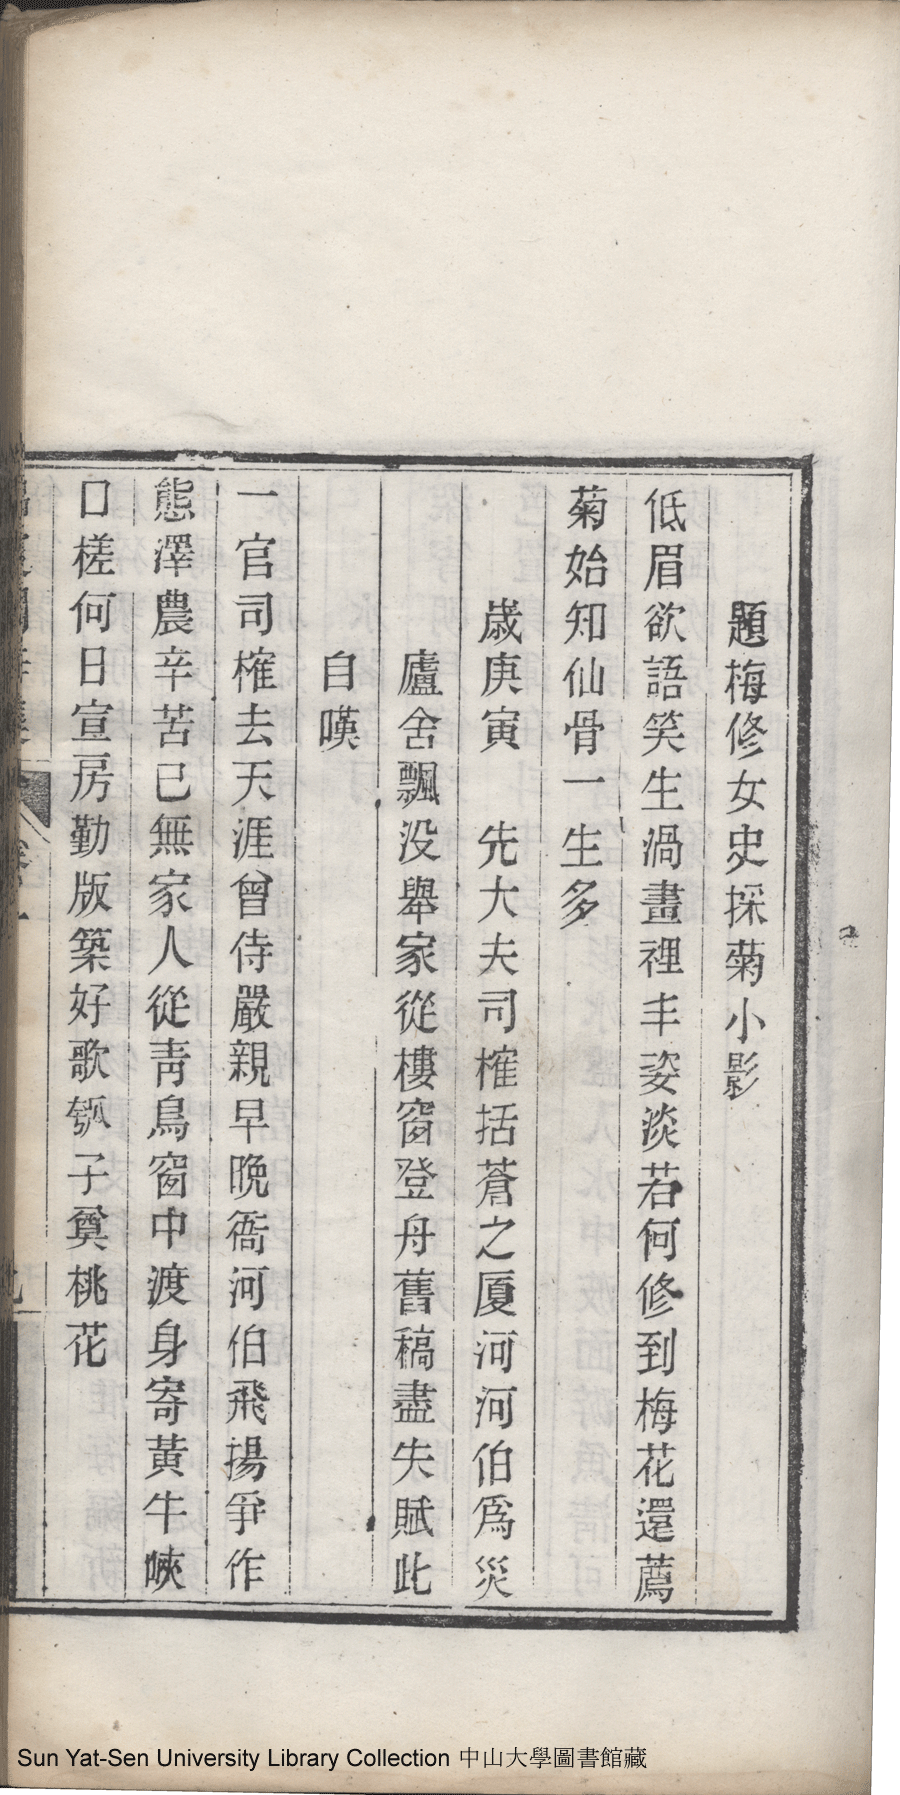 題梅修女史採菊小影
低眉欲語笑生渦畫裡丰姿淡若何修到梅花還薦
菊始知仙骨一生多
歲庚寅　先大夫司榷括蒼之厦河河伯爲災
廬舍飄没舉家從樓窗登舟舊稿盡失賦此
自嘆
一官司榷去天涯曾侍嚴親早晚衙河伯飛揚爭作
態澤農辛苦已無家人從靑鳥窗中渡身寄黃牛峽
口槎何日宣房勤版築好歌瓠子奠桃花
Sun Yat-Sen University Library Collection 中山大學圖書館藏